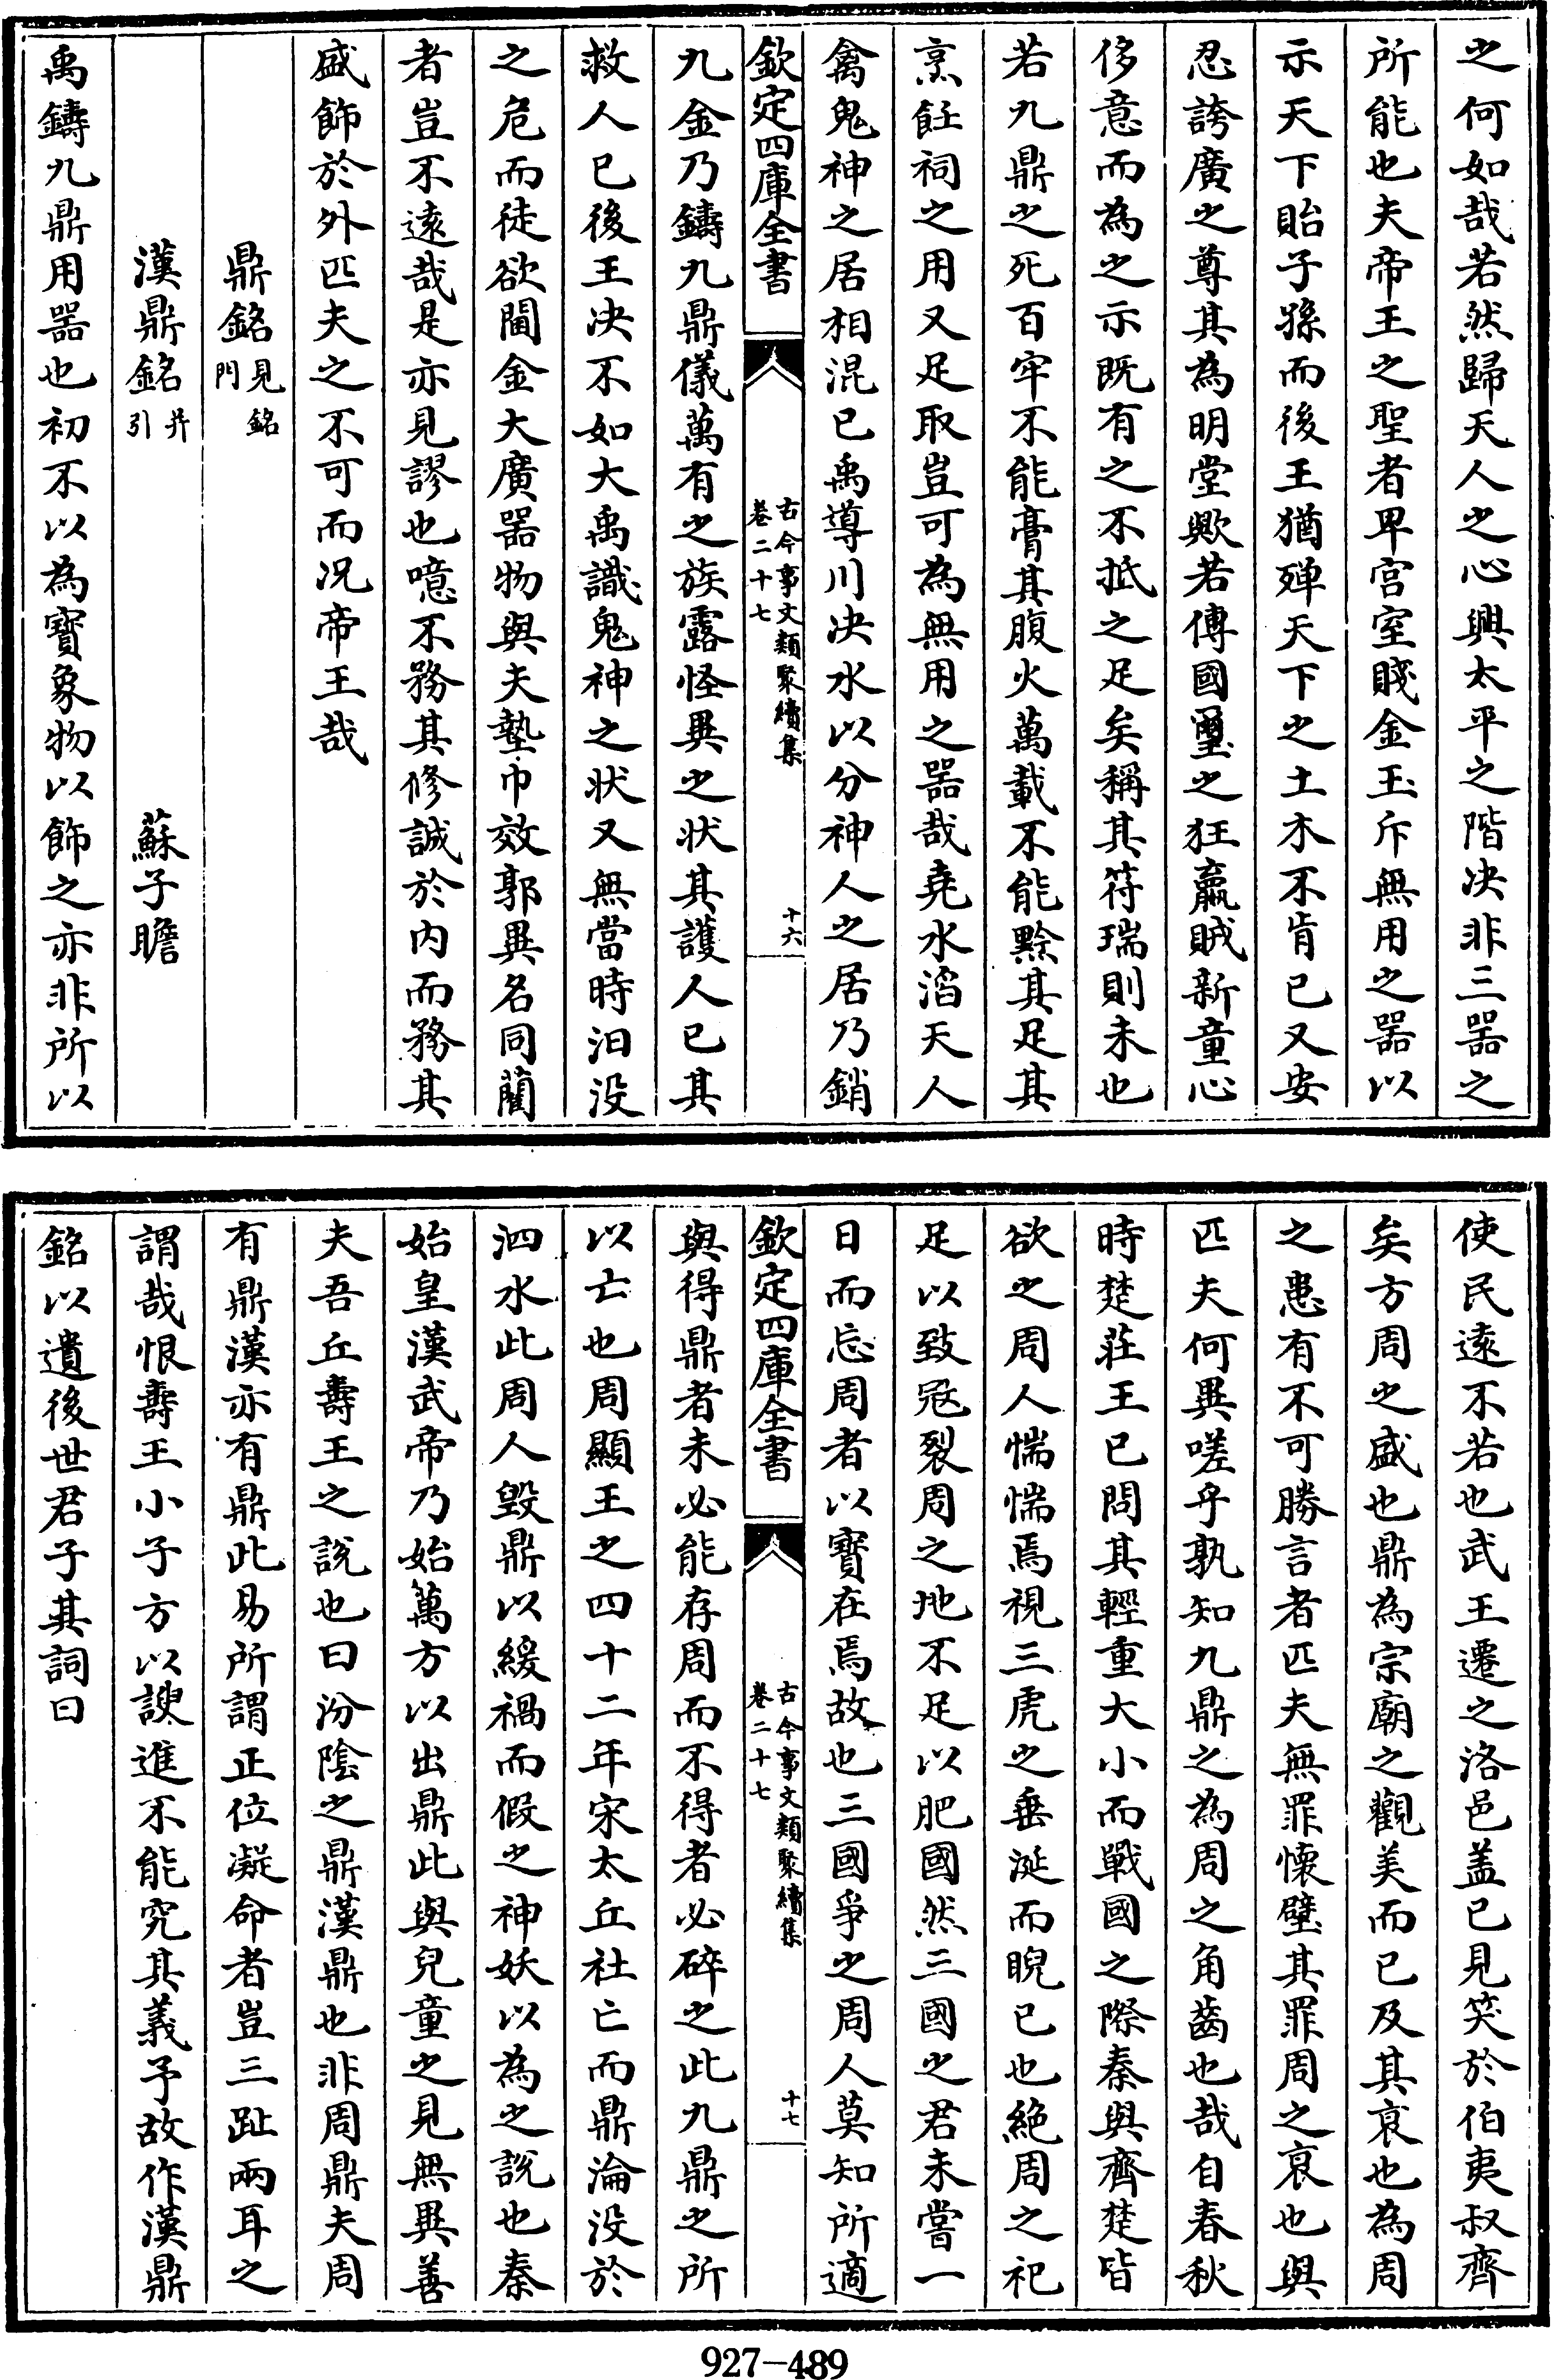 之何如哉若然歸天人之心興太平之階决非三器之
所能也夫帝王之聖者卑宫室賤金玉斥無用之器以
示天下貽子孫而後王猶殫天下之土木不肯已又安
忍誇廣之尊其為明堂歟若傳國璽之狂嬴賊新童心
侈意而為之示既有之不抵之足矣稱其符瑞則未也
若九鼎之死百牢不能膏其腹火萬載不能黔其足其
烹飪祠之用又足取豈可為無用之器哉堯水滔天人
禽鬼神之居相混已禹導川决水以分神人之居乃銷
欽定四庫全書
古今事文類聚續集
卷二十七
十六
九金乃鑄九鼎儀萬有之族露怪異之状其護人已其
救人已後王决不如大禹識鬼神之状又無當時汩没
之危而徒欲闓金大廣器物與夫墊巾效郭異名同藺
者豈不遠哉是亦見謬也噫不務其修誠於内而務其
盛飾於外匹夫之不可而况帝王哉
鼎銘見銘門
漢鼎銘并引 蘇子瞻
禹鑄九鼎用器也初不以為寶象物以飾之亦非所以
使民遠不若也武王遷之洛邑盖已見笑於伯夷叔齊
矣方周之盛也鼎為宗廟之觀美而已及其衰也為周
之患有不可勝言者匹夫無罪懷璧其罪周之衰也與
匹夫何異嗟乎孰知九鼎之為周之角齒也哉自春秋
時楚莊王已問其輕重大小而戰國之際秦與齊楚皆
欲之周人惴惴焉視三虎之垂涎而睨已也絶周之祀
足以致冦裂周之地不足以肥國然三國之君未嘗一
日而忘周者以寶在焉故也三國爭之周人莫知所適
欽定四庫全書
古今事文類聚續集
卷二十七
十七
與得鼎者未必能存周而不得者必碎之此九鼎之所
以亡也周顯王之四十二年宋太丘社亡而鼎淪没於
泗水此周人毁鼎以緩禍而假之神妖以為之説也秦
始皇漢武帝乃始萬方以出鼎此與兒童之見無異善
夫吾丘壽王之説也曰汾陰之鼎漢鼎也非周鼎夫周
有鼎漢亦有鼎此易所謂正位凝命者豈三趾兩耳之
謂哉恨壽王小子方以諛進不能究其義予故作漢鼎
銘以遺後世君子其詞曰
927-489